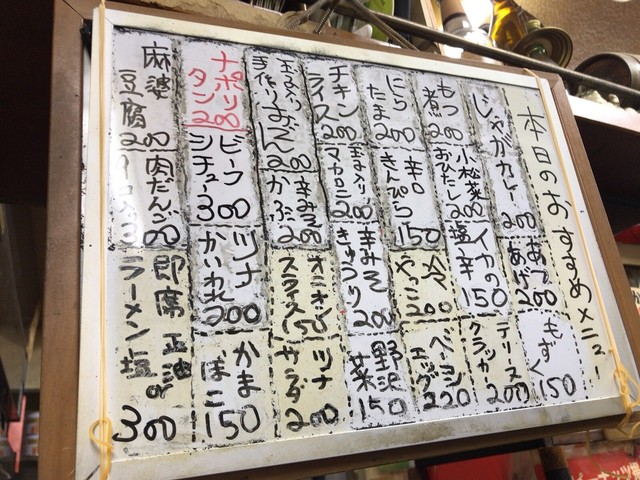 本日のおすすめメニュー
じゃがカレー 200
あつあげ 200
もずく 150
もつ煮 200
小松菜おひたし 200
イカの塩辛 150
チーズクラッカー 200
にらたま 200
辛口きんぴら 150
冷やっこ 200
ベーコンエッグ 220
チキンライス 200
玉子入りマカロニ 200
辛みそきゅうり 200
野沢菜 150
玉子入り手作りうどん 200
辛みそかぶ 200
オニオンスライス 150
ツナサラダ 200
ナポリタン 200
ビーフシチュー 300
ツナかいわれ 200
かまぼこ 150
麻婆豆腐 200
肉だんご
300
即席ラーメン 正油or塩 300